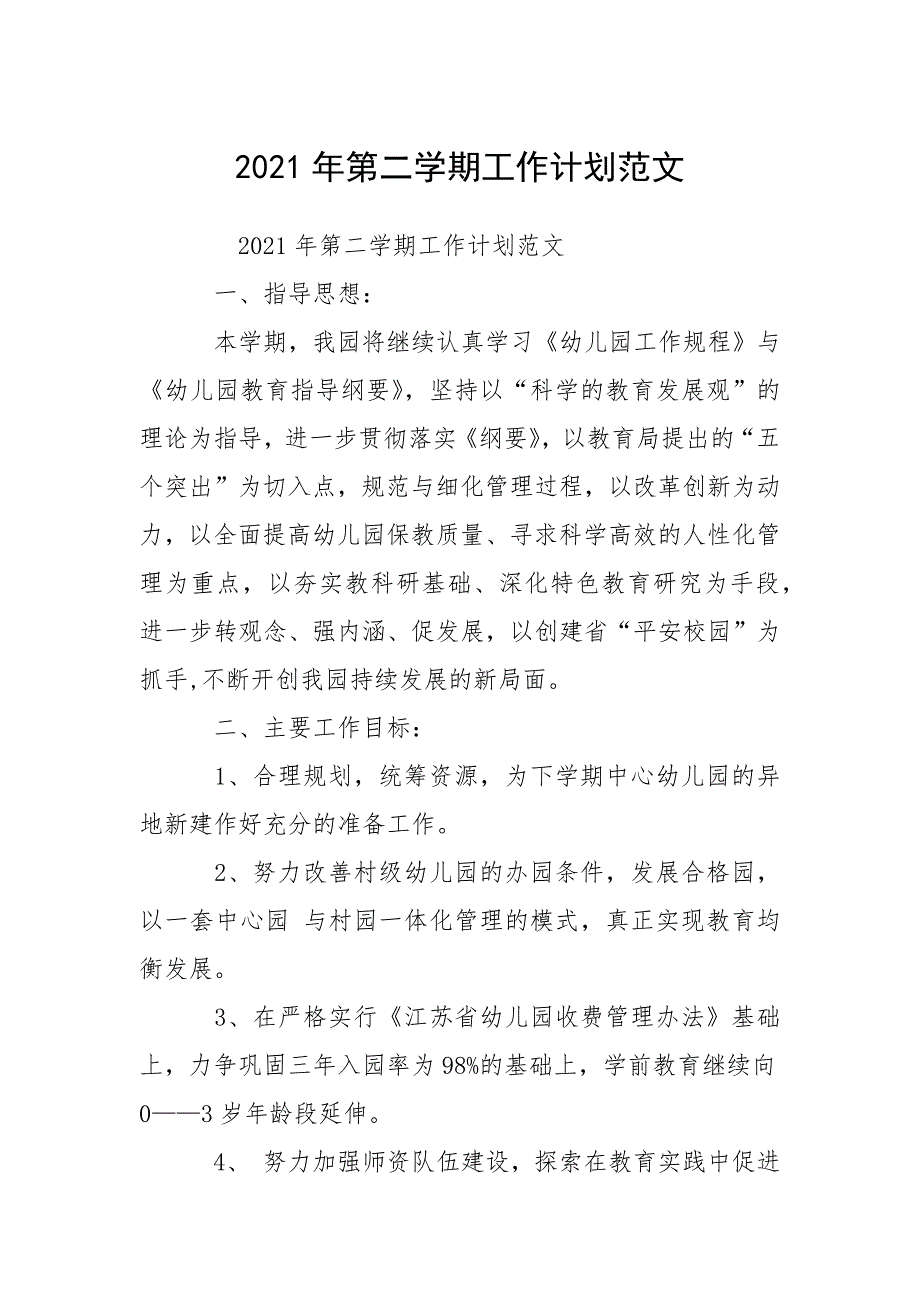 2021 年第二学期工作计划范文
2021 年第二学期工作计划范文
一、指导思想：
本学期，我园将继续认真学习《幼儿园工作规程》与
《幼儿园教育指导纲要》，坚持以“科学的教育发展观”的
理论为指导，进一步贯彻落实《纲要》，以教育局提出的“五
个突出”为切入点，规范与细化管理过程，以改革创新为动
力，以全面提高幼儿园保教质量、寻求科学高效的人性化管
理为重点，以夯实教科研基础、深化特色教育研究为手段，
进一步转观念、强内涵、促发展，以创建省“平安校园”为
抓手,不断开创我园持续发展的新局面。
二、主要工作目标：
1、合理规划，统筹资源，为下学期中心幼儿园的异
地新建作好充分的准备工作。
2、努力改善村级幼儿园的办园条件，发展合格园，
以一套中心园 与村园一体化管理的模式，真正实现教育均
衡发展。
3、在严格实行《江苏省幼儿园收费管理办法》基础
上，力争巩固三年入园率为 98%的基础上，学前教育继续向
0——3 岁年龄段延伸。
4、 努力加强师资队伍建设，探索在教育实践中促进